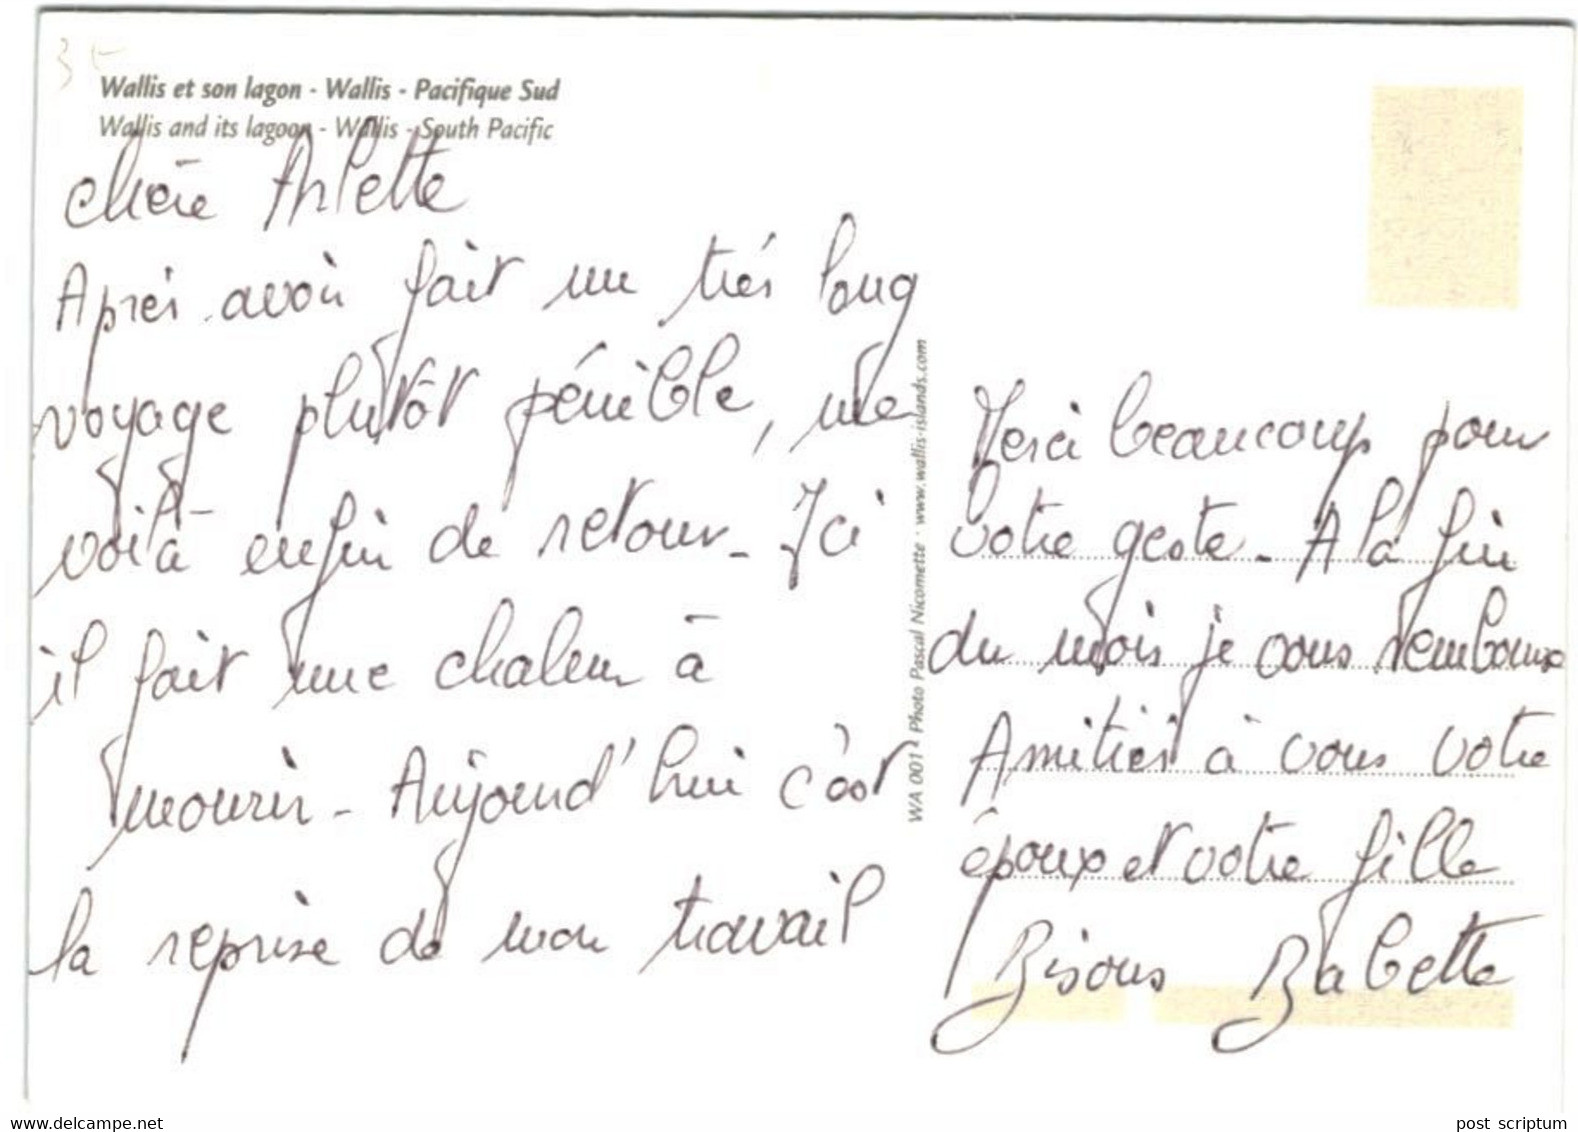 3€
Wallis et son lagon - Wallis - Pacifique Sud
Wallis and its lagoon - Wallis - South Pacific
Chère Arlette
Après avoir fait un très long
voyage plutôt pénible, me
voilà enfin de retour - Ici
il fait une chaleur à
mourir - Aujourd'hui c'est
la reprise de mon travail
WA 001 • Photo Pascal Nicomette • www.wallis-islands.com
Merci beaucoup pour
votre geste - A la fin
du mois je vous rembourse
Amitiés à vous votre
époux et votre fille
Bisous Babette
www.delcampe.net
post_scriptum